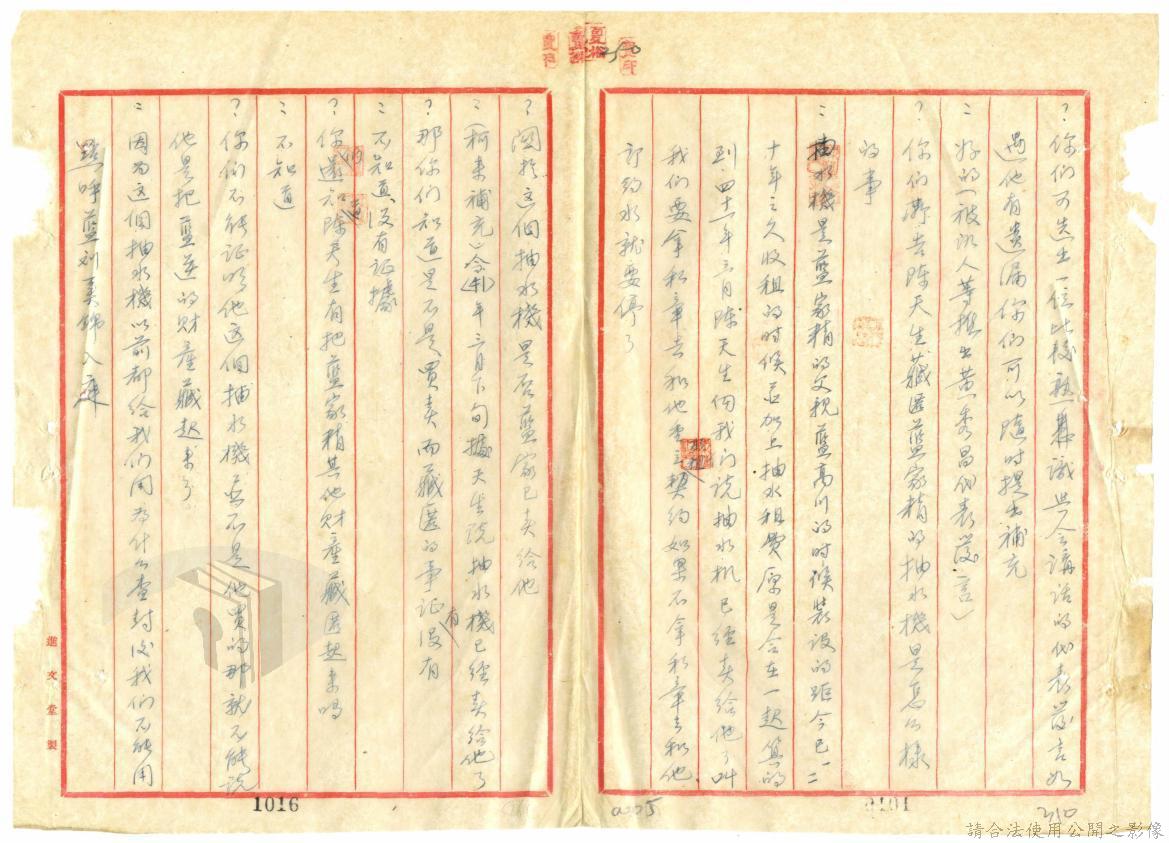 ?你們可選出一位比較熟悉認識與會講話的代表發言如
遇他有遺漏你們可以隨時提出補充
:好的(被訊人等推出黃秀昌代表發言)
?你們要告陳天生藏匿藍家精的抽水機是怎么樣
的事
:抽水機是藍家精的父親藍高川的時候裝設的距今已一二
十年之久收租的時候已加上抽水租費原是合在一起算的
到四十一年三月陳天生向我们說抽水机已經卖給他了叫
我們要拿私章去和他重立契约如果不拿私章去和他
訂约水就要停了
?関於這個抽水機是否藍家已卖給他
:(柯來補充)今(41)年三月下旬據天生說抽水機已經卖給他了
?那你们知道是不是買卖而藏匿的事证沒有
:不知道沒有证據
?你還知道陳天生有把藍家精其他財產藏匿起來嗎
:不知道
?你们不能证明他这個抽水機并不是他買的那就不能說
他是把藍逆的財產藏起來了
:因为这個抽水機以前都給我们用為什么查封後我们不能用
點呼藍刘美錦入庭
進文堂製
1016
0101
310
請合法使用公開之影像